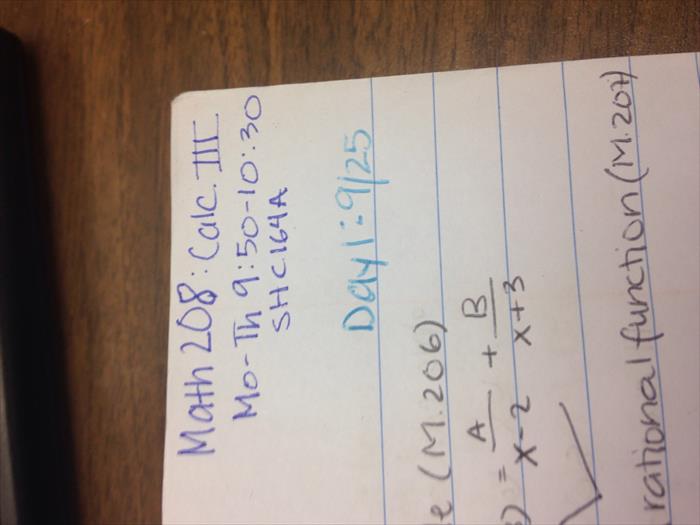 Math 208: Calc. III
Mo-Th 9:50-10:30
SHC164A
Day 1:9/25
e (M.206)
) = A/x-2 + B/x+3
rational function (M.207)